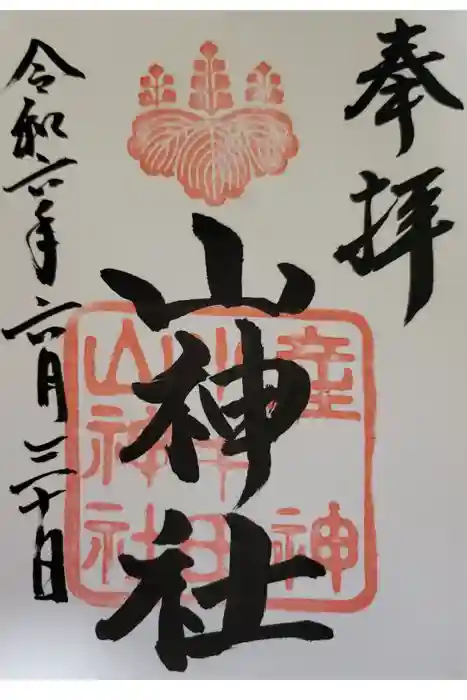 奉拝
山神社
令和六年六月三十日
山神社
神